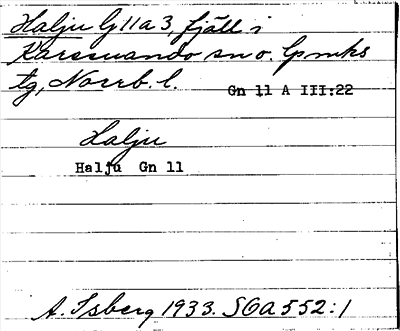 Halju Gj 11 a 3, fjäll i
Karesuando sn o. lpmks
tg, Norrb. l.
Gn 11 A III:22
Halju
Halju Gn 11
A. Isberg 1933. SOA 552:1